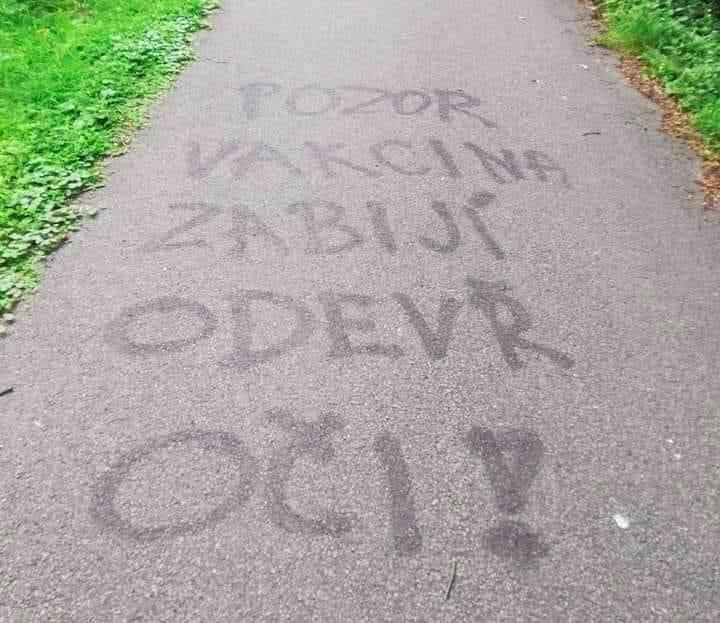 POZOR
VAKCINA
ZABIJÍ
ODEVŘ
OČI!